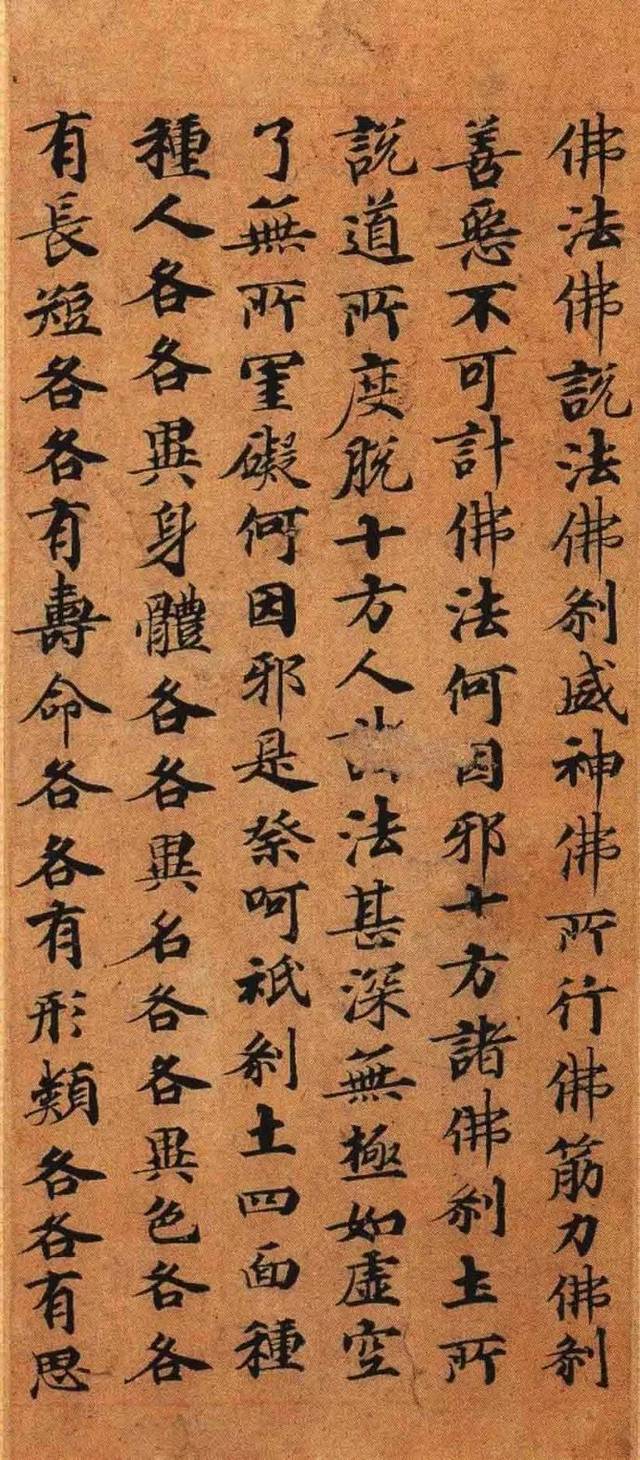 佛法佛說法佛剎威神佛所行佛筋力佛剎
善惡不可計佛法何因邪十方諸佛剎土所
說道所度脫十方人法甚深無極如虛空
了無所罣礙何因邪是祭呵祇剎土四面種
種人各各異身體各各異名各各異色各各
有長短各各有壽命各各有形類各各有思